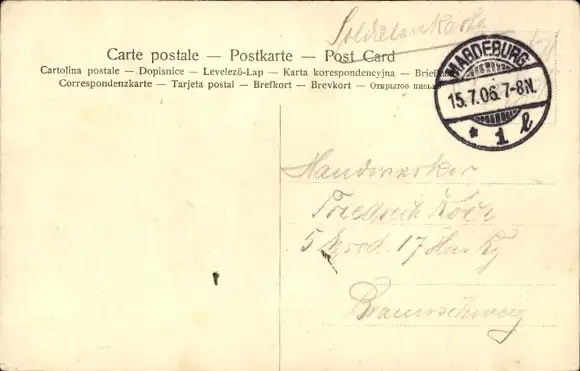 Soldatenkarte
Carte postale — Postkarte — Post Card
Cartolina postale — Dopisnice — Levelező-Lap — Karta korespondencyjna — Brief
Correspondenzkarte — Tarjeta postal — Brefkort — Brevkort — Открытое письмо
MAGDEBURG
15.7.06. 7-8N.
* 1 l
Handwerker
Friedrich
5 17 Hus
Braunschweig